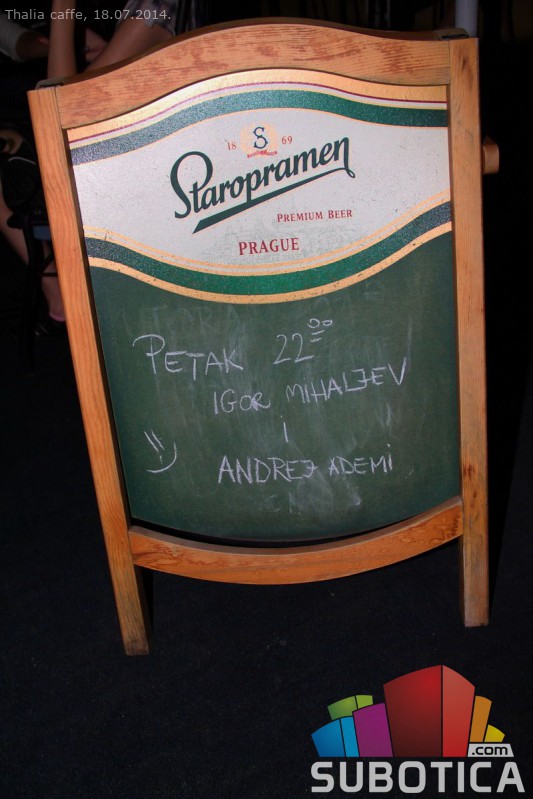 Thalia caffe, 18.07.2014.
18 S 69
Staropramen
PREMIUM BEER
PRAGUE
PETAK 22 00
IGOR MIHALJEV
i
ANDREJ ADEMI
.com
SUBOTICA